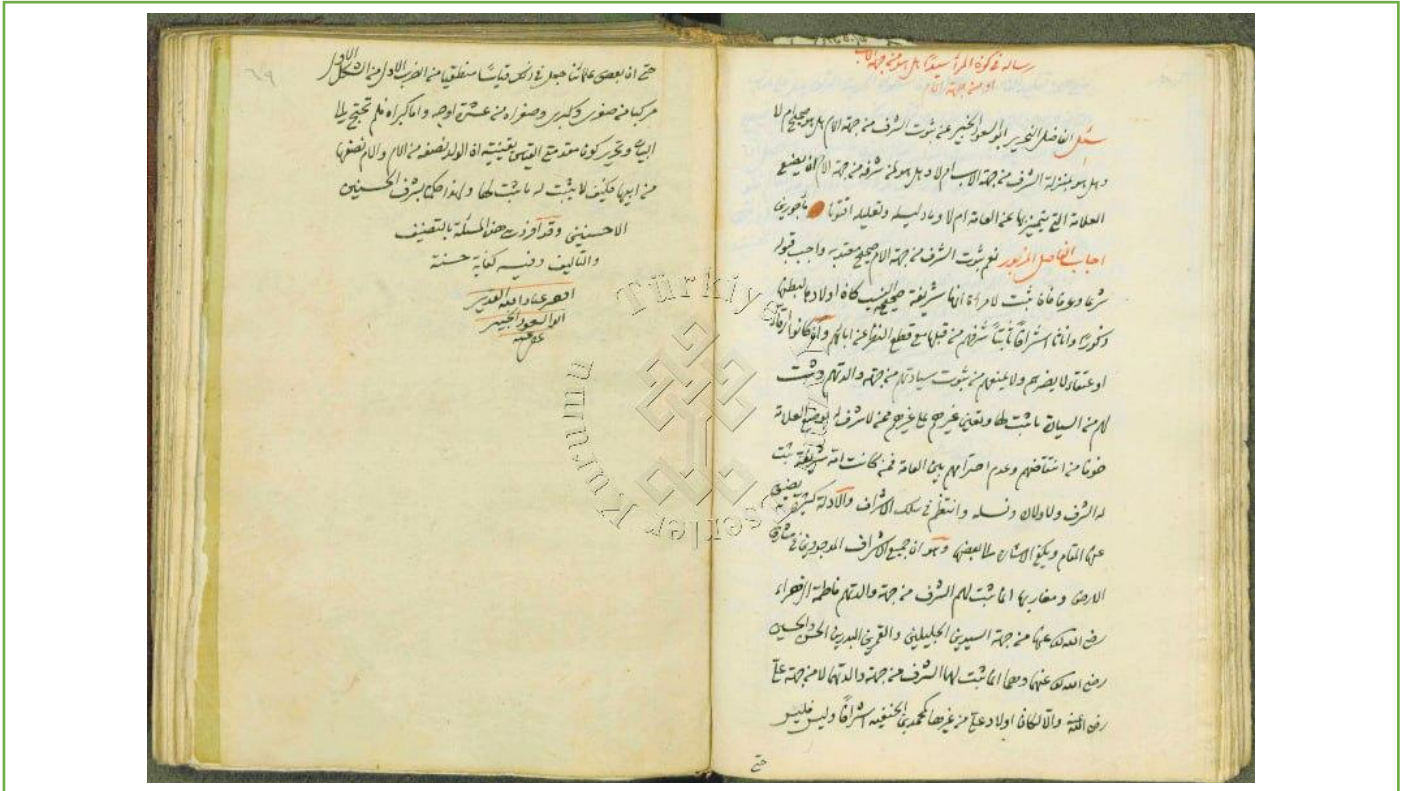 رساله في كون المرأ سيدًا هل هو من جهة الاب
او من جهة الام
سئل الفاضل النحرير ابو السعود الخبير عن ثبوت الشرف من جهة الام هل هو صحيح ام لا
وهل هو بمنزلة الشرف من جهة الاب ام لا وهل هو لمن شرفه من جهة الام ان يضع
العلامة التي يتميز بها عن العامة ام لا وما دليله وتعليله افتونا مأجورين
اجاب الفاضل المزبور نعم ثبوت الشرف من جهة الام صحيح معتد به واجب قبوله
شرعا وعرفا فان ثبت لامرأة انها شريفة صحيحة النسب كان اولادها لبطنها
ذكورًا واناثا اشرافًا ثابتًا شرفهم من قبلها مع قطع النظر عن ابائهم وان كانوا ارقاء
او عتقاء لا يضرهم ولا يمنعهم من ثبوت سيادتهم من جهة والدتهم ويثبت
لهم من السيادة ما ثبت لها وتعين غيرهم على غيرهم ممن لا شرف له بوضع العلامة
خوفا من انتقاصهم وعدم احترامهم بين العامة فمن كانت امه شريفة ثبت
له الشرف ولاولاده ونسله وانتظم في سلك الاشراف والادلة كثيرة يضيق
عنها المقام ويكفي الاشارة الى بعضها وهو ان جميع الاشراف الموجودين في مشارق
الارض ومغاربها انما ثبت لهم الشرف من جهة والدتهم فاطمة الزهراء
رضي الله تعالى عنها من جهة السيدين الجليلين والقمرين البدرين الحسن والحسين
رضي الله تعالى عنهما وهما انما ثبت لهما الشرف من جهة والدتهما لا من جهة علي
رضي الله عنه والا لكان اولاد علي من غيرها كمحمد بن الحنفية اشرافًا وليس فليس
حتى
٦٩
حتى ان بعض علمائنا جعل في ذلك قياسًا منطقيا من الضرب الاول من الشكل الاول
مركبا من صغرى وكبرى وصغراه من عشرة اوجه واما كبراه فلم تحتج الى
البيان وتحرير كون مقدمتي القياس يقينية ان الولد نصفه من الام والام نصفها
من ابيها فكيف لا يثبت له ما ثبت لها ولهذا حكم بشرف الحسنين
الاحسنين وقد افردت هذه المسئلة بالتصنيف
والتاليف وفيه كفاية حسنة
افقر عباد الله القدير
ابو السعود الخبير
عفي عنه
Türkiye Yazma Eserler Kurumu